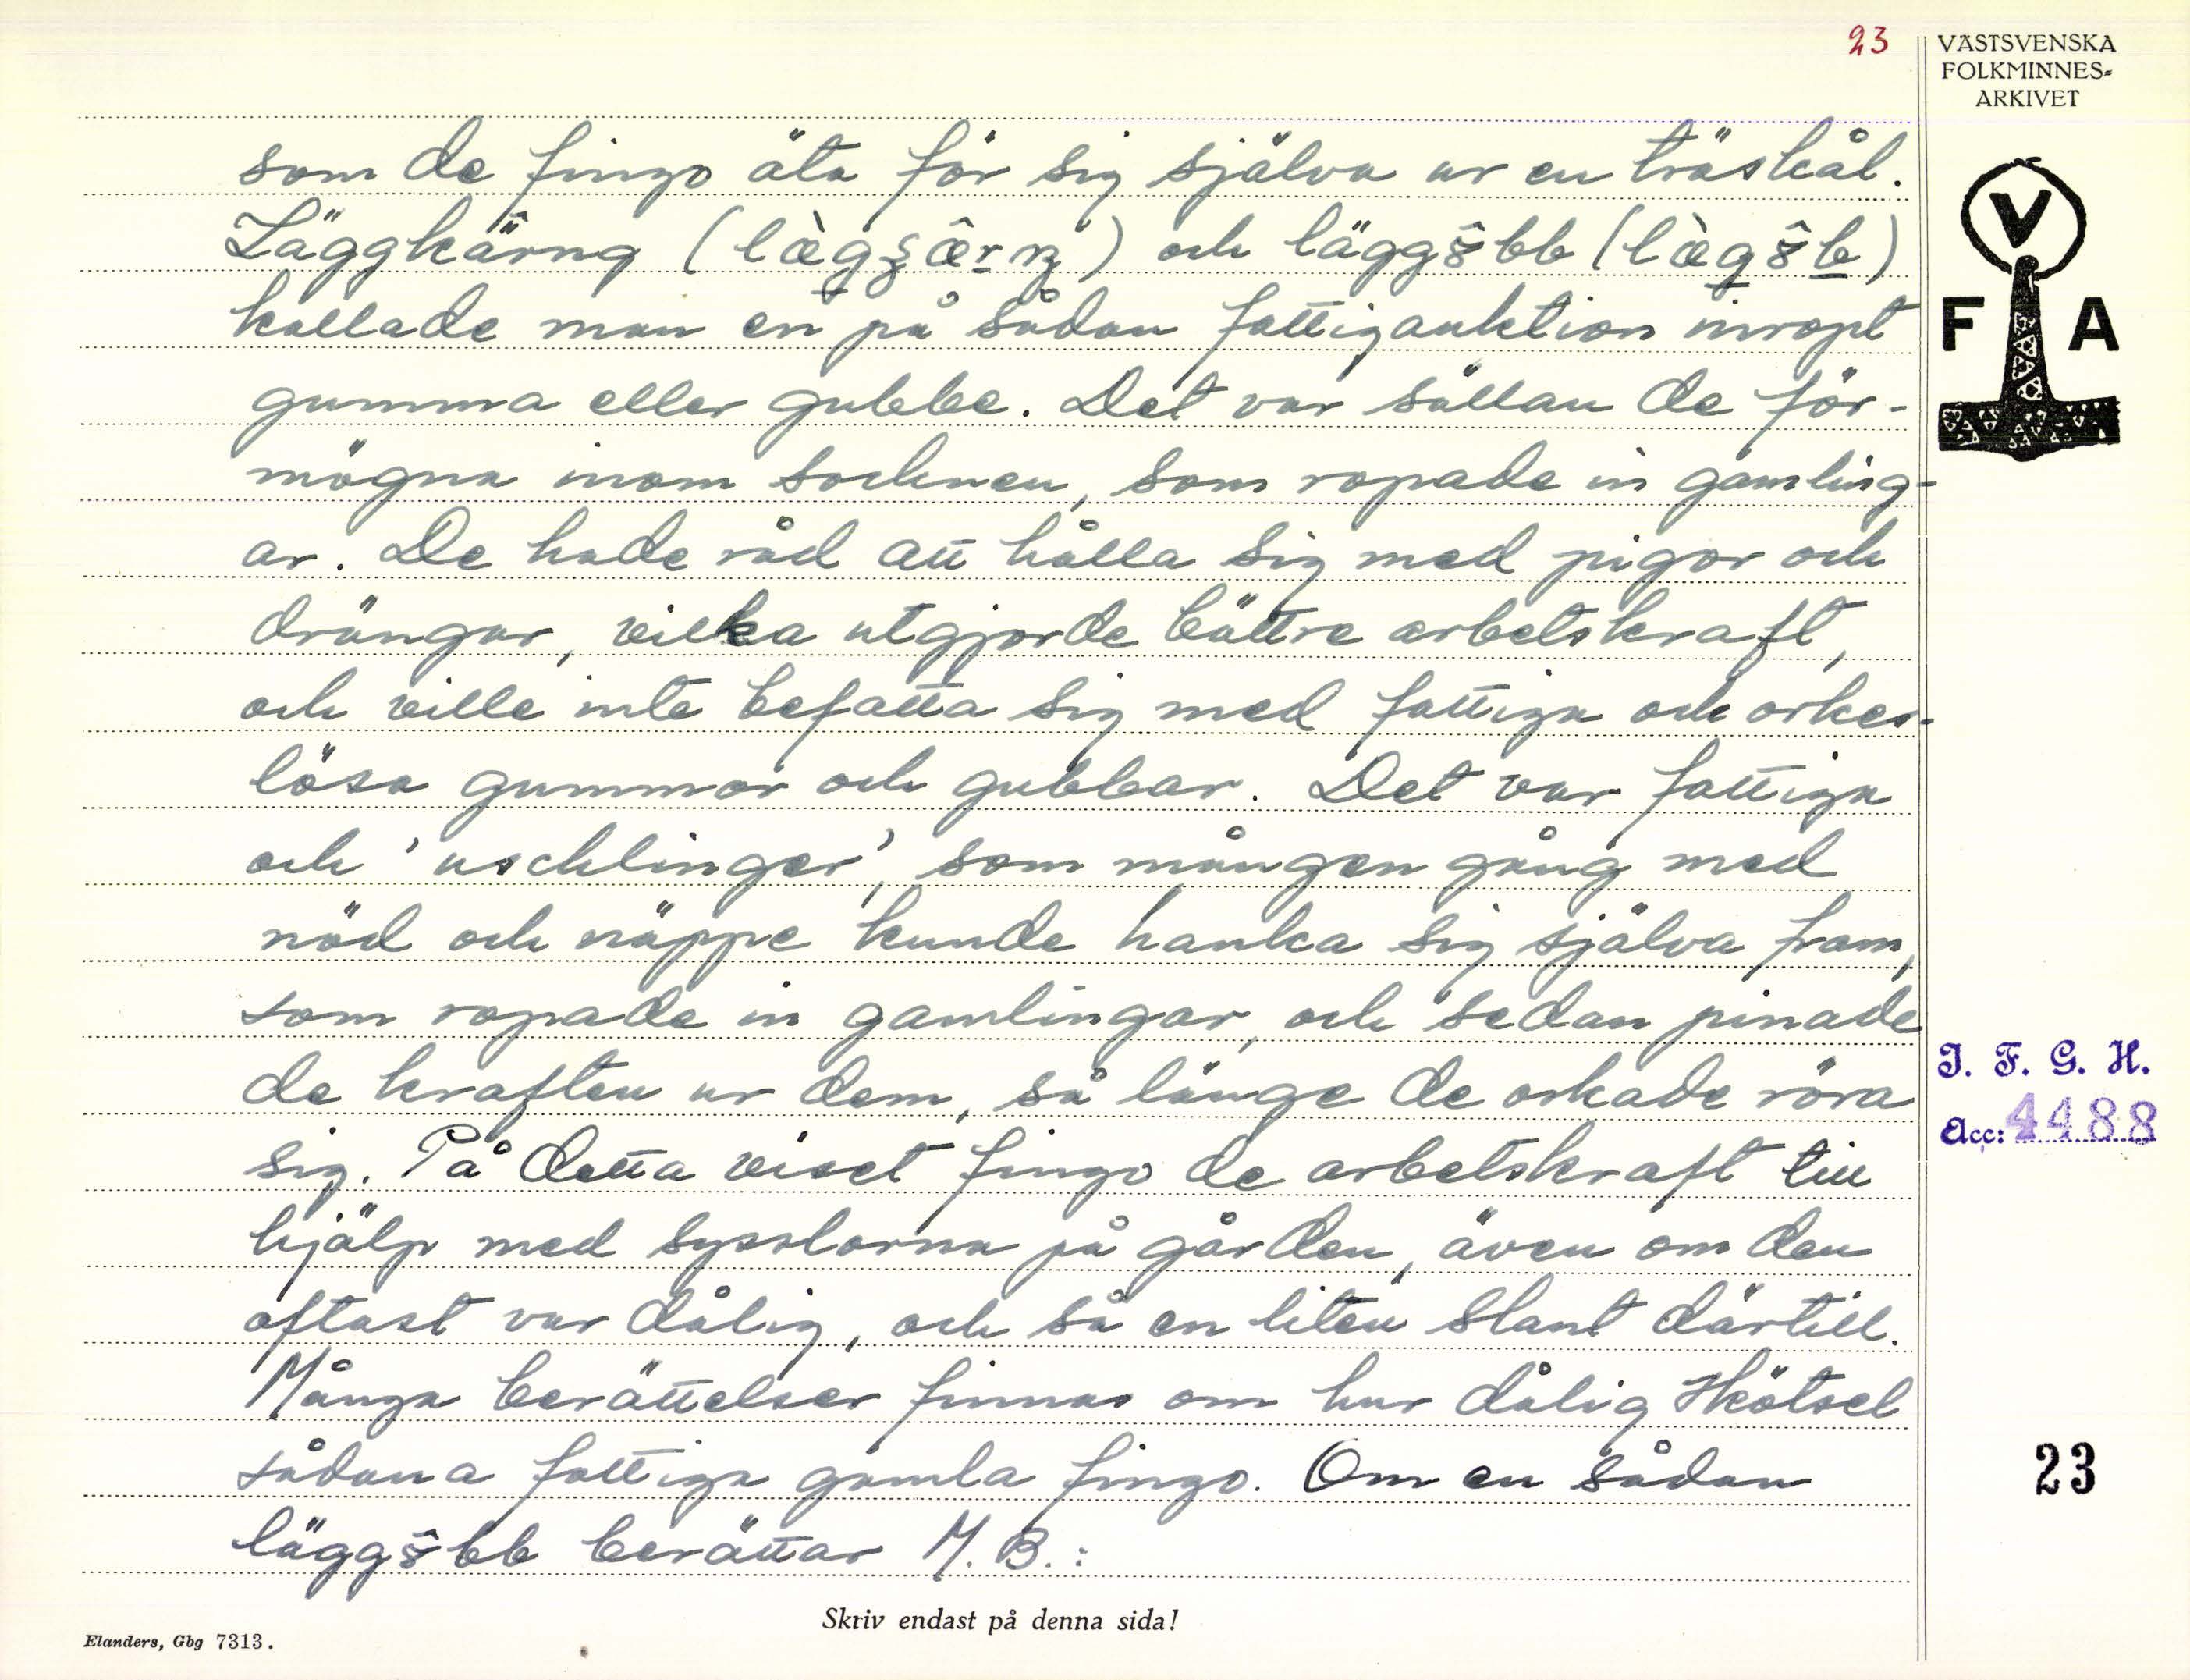 23
VÄSTSVENSKA
FOLKMINNES-
ARKIVET
som de fingo äta för sig själva ur en träskål.
Läggkärng ( ) och läggôbb ( )
kallade man en på sådan fattigauktion inropt
gumma eller gubbe. Det var sällan de för-
mögna inom socknen, som ropade in gamling-
ar. De hade råd att hålla sig med pigor och
drängar, vilka utgjorde bättre arbetskraft,
och ville inte befatta sig med fattiga och orkes-
lösa gummor och gubbar. Det var fattiga
och 'uschlinger', som mången gång med
nöd och näppe kunde hanka sig själva fram,
som ropade in gamlingar, och sedan pinade
de kraften ur dem, så länge de orkade röra
sig. På detta viset fingo de arbetskraft till
hjälp med sysslorna på gården, även om den
oftast var dålig, och så en liten slant därtill.
Många berättelser finnas om hur dålig skötsel
sådana fattiga gamla fingo. Om en sådan
läggôbb berättar M. B.:
V
F A
I. F. G. H.
Acc: 4488
23
Skriv endast på denna sida!
Elanders, Gbg 7313.